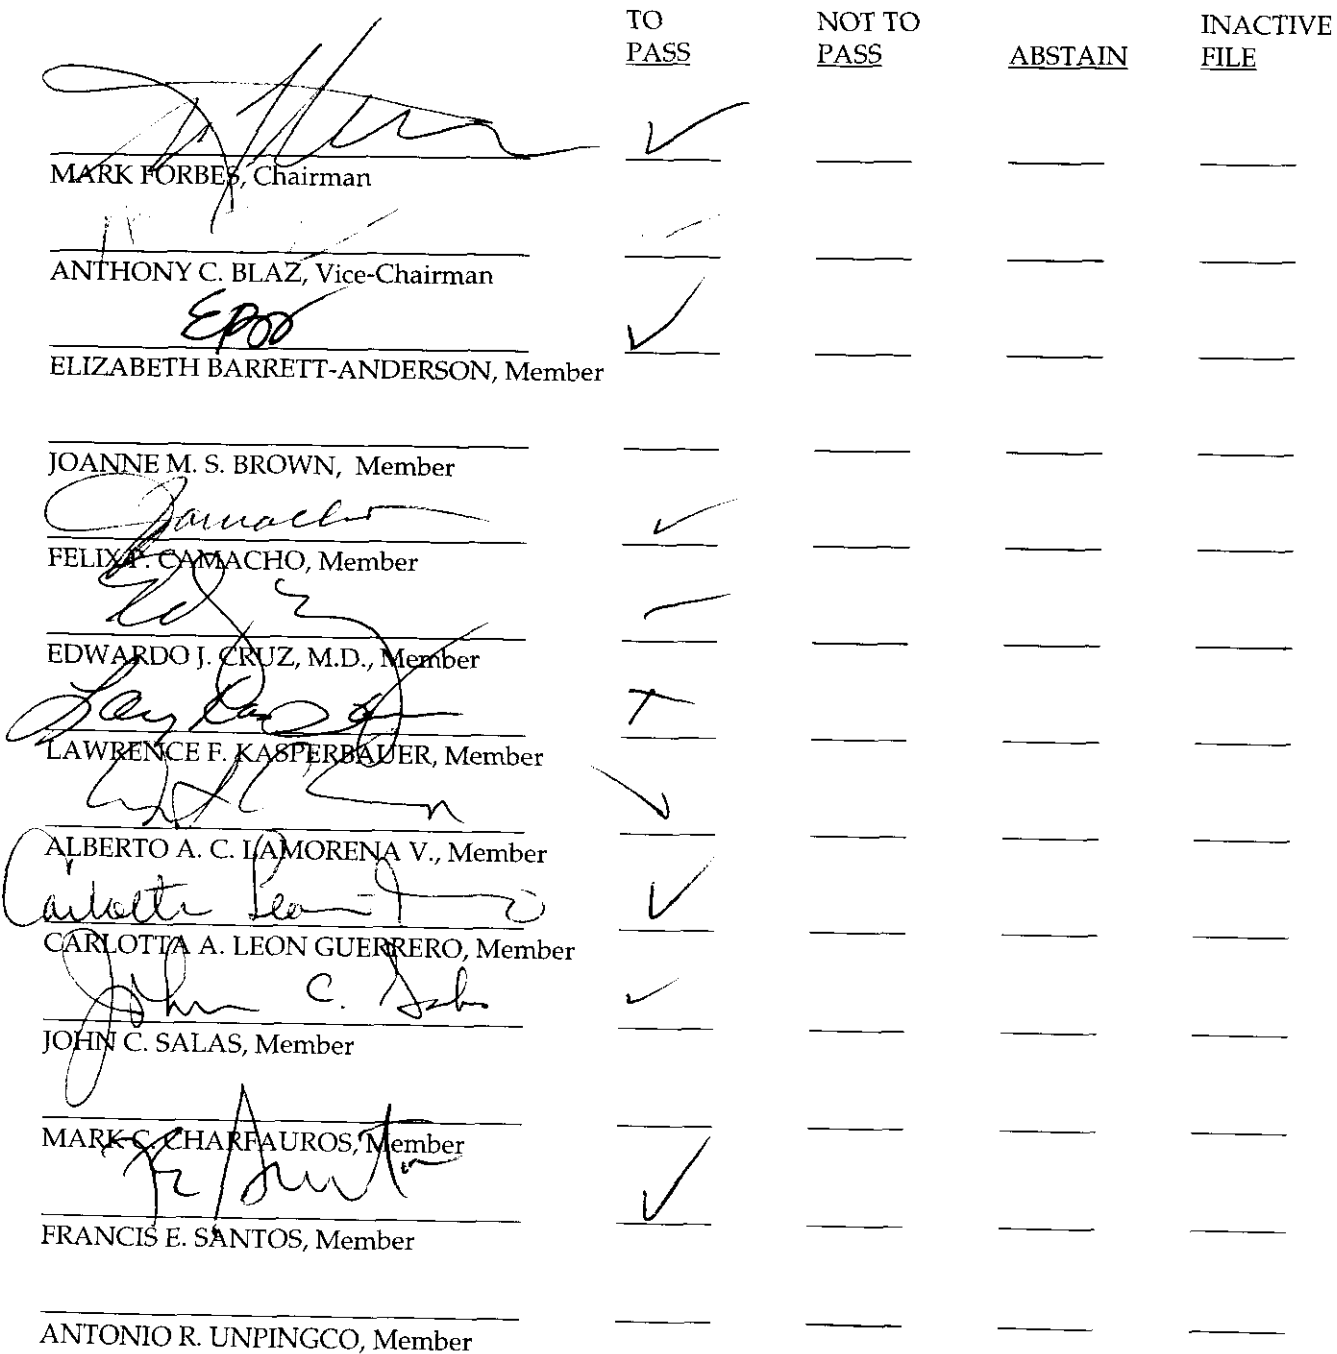 TO PASS NOT TO PASS ABSTAIN INACTIVE FILE
MARK FORBES, Chairman
ANTHONY C. BLAZ, Vice-Chairman
ELIZABETH BARRETT-ANDERSON, Member
JOANNE M. S. BROWN, Member
Camacho
FELIX P. CAMACHO, Member
EDWARDO J. CRUZ, M.D., Member
LAWRENCE F. KASPERBAUER, Member
ALBERTO A. C. LAMORENA V., Member
Carlotta Leon
CARLOTTA A. LEON GUERRERO, Member
John C. Salas
JOHN C. SALAS, Member
MARK C. CHARFAUROS, Member
FRANCIS E. SANTOS, Member
ANTONIO R. UNPINGCO, Member